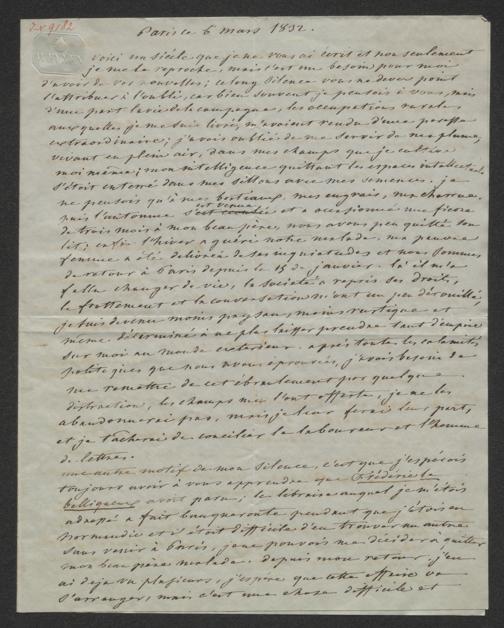 2x9182
Paris le 6 mars 1832.
voici un siècle que je ne vous ai écrit et non seulement
je me le reproche, mais c'est un besoin pour moi
d'avoir de vos nouvelles; ce long silence vous ne devez point
l'attribuer à l'oubli, car bien souvent je pensois à vous, mais
d'une part la vie de la campagne, les occupations rurales
auxquelles je me suis livré, m'avaient rendu d'une paresse
extraordinaire; j'avois oublié de me servir de ma plume,
vivant en plein air, dans mes champs que je cultive
moi même; mon intelligence quittant les espaces intellectuels
s'étoit enterré dans mes sillons avec mes semences. je
ne pensois qu'à mes bestiaux, mes engrais, ma charrue.
est venue
puis l'automne et a occasionné une fièvre
de trois mois à mon beau père, nous avons peu quitté son
lit; enfin l'hiver a guéri notre malade. ma pauvre
femme a été délivrée de ses inquiétudes et nous sommes
de retour à Paris depuis le 15 de janvier. là il m'a
fallu changer de vie, la société a repris ses droits,
le frottement et la conversation m'ont un peu dérouillé,
je suis devenu moins paysan, moins rustique et
même déterminé à ne plus laisser prendre tant d'empire
sur moi au monde extérieur. après toutes les calamités
politiques que nous avons éprouvées, j'avois besoin de
me remettre de cet ébranlement par quelque
distraction, les champs me l'ont offerte, je ne les
abandonnerai pas, mais je leur ferai leur part,
et je tâcherai de concilier le laboureur et l'homme
de lettres.
une autre motif de mon silence, c'est que j'espérois
toujours avoir à vous apprendre que Frédéric le
belliqueux avoit paru; le libraire auquel je m'étois
adressé a fait banqueroute pendant que j'étois en
Normandie et il étoit difficile d'en trouver un autre
sans venir à Paris, je ne pouvois me décider à quitter
mon beau père malade. depuis mon retour j'en
ai déjà vu plusieurs, j'espère que cette affaire va
s'arranger, mais c'est une chose difficile et